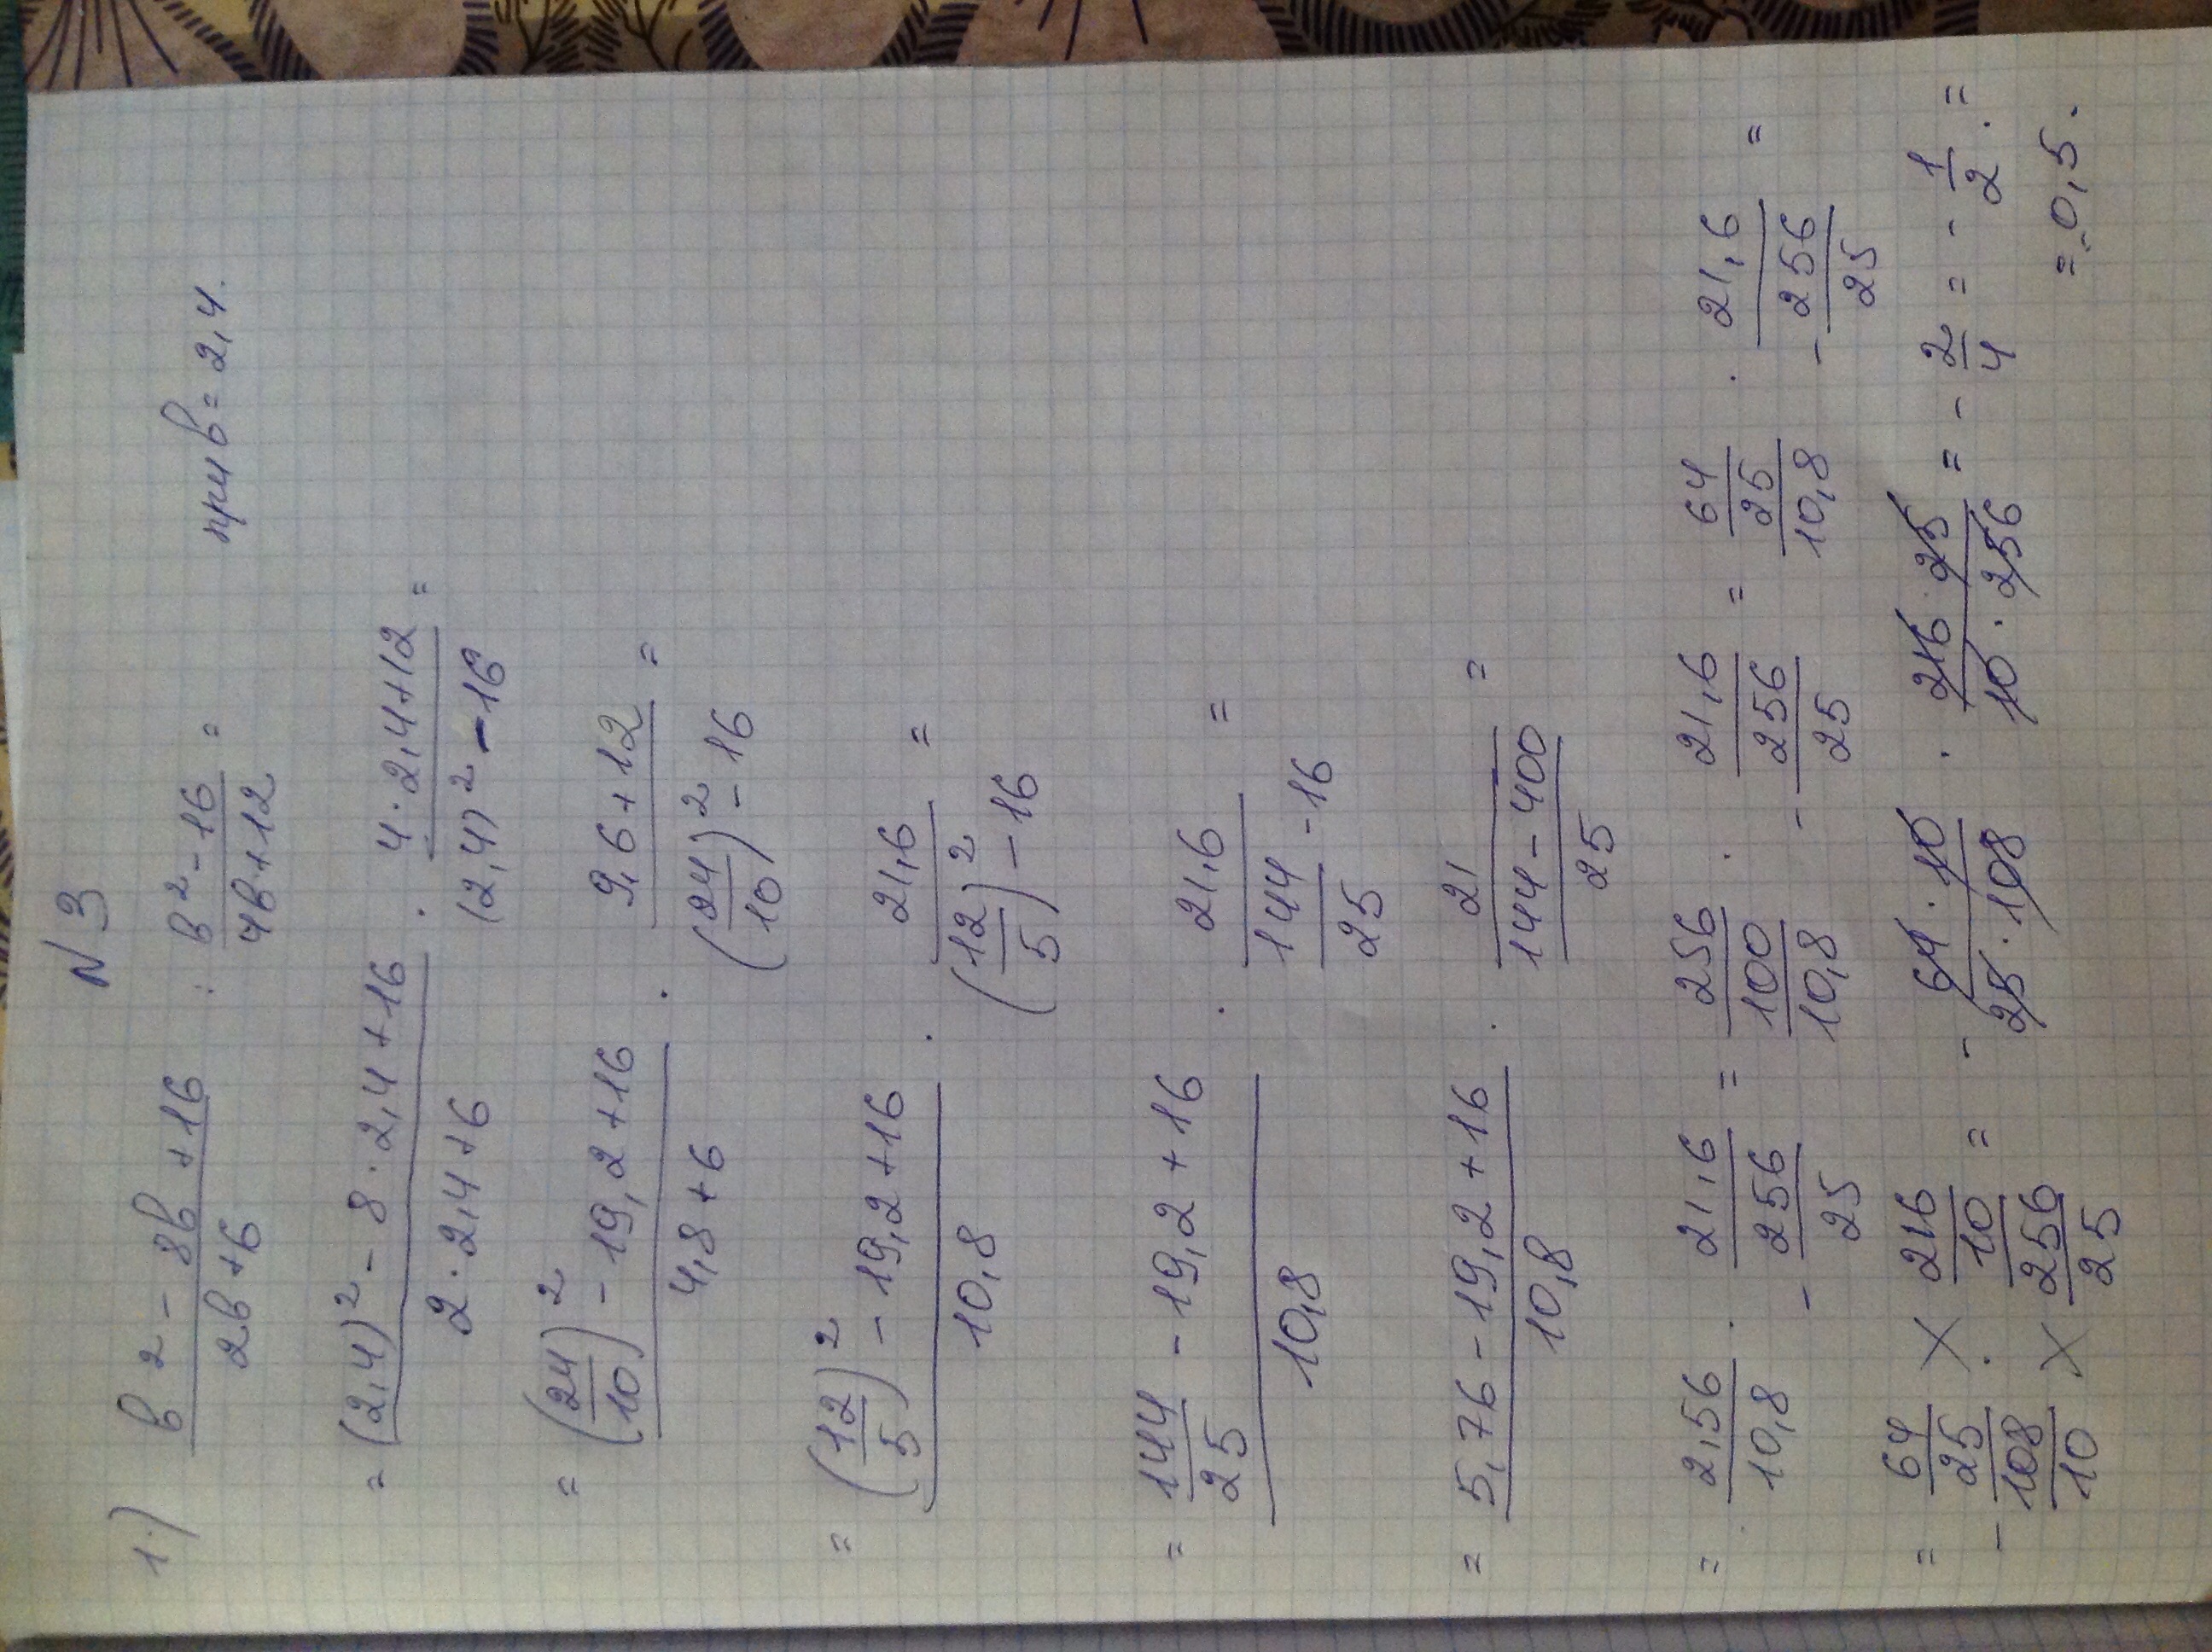 N 3
1.) (в² - 8в + 16)/(2в + 6) : (в² - 16)/(4в + 12) = при в = 2,4.
= ((2,4)² - 8 · 2,4 + 16)/(2 · 2,4 + 6) · (4 · 2,4 + 12)/((2,4)² - 16) =
= ((24/10)² - 19,2 + 16)/(4,8 + 6) · (9,6 + 12)/((24/10)² - 16) =
= ((12/5)² - 19,2 + 16)/(10,8) · 21,6/((12/5)² - 16) =
= (144/25 - 19,2 + 16)/(10,8) · 21,6/(144/25 - 16) =
= (5,76 - 19,2 + 16)/(10,8) · 21/((144 - 400)/25) =
= 2,56/10,8 · 21,6/(- 256/25) = (256/100)/(10,8) · 21,6/(- 256/25) = (64/25)/(10,8) · 21,6/(- 256/25) =
= - (64/25)/(108/10) · (216/10)/(256/25) = - (64 · 10)/(25 · 108) · (216 · 25)/(10 · 256) = - 2/4 = - 1/2 . =
= - 0,5.